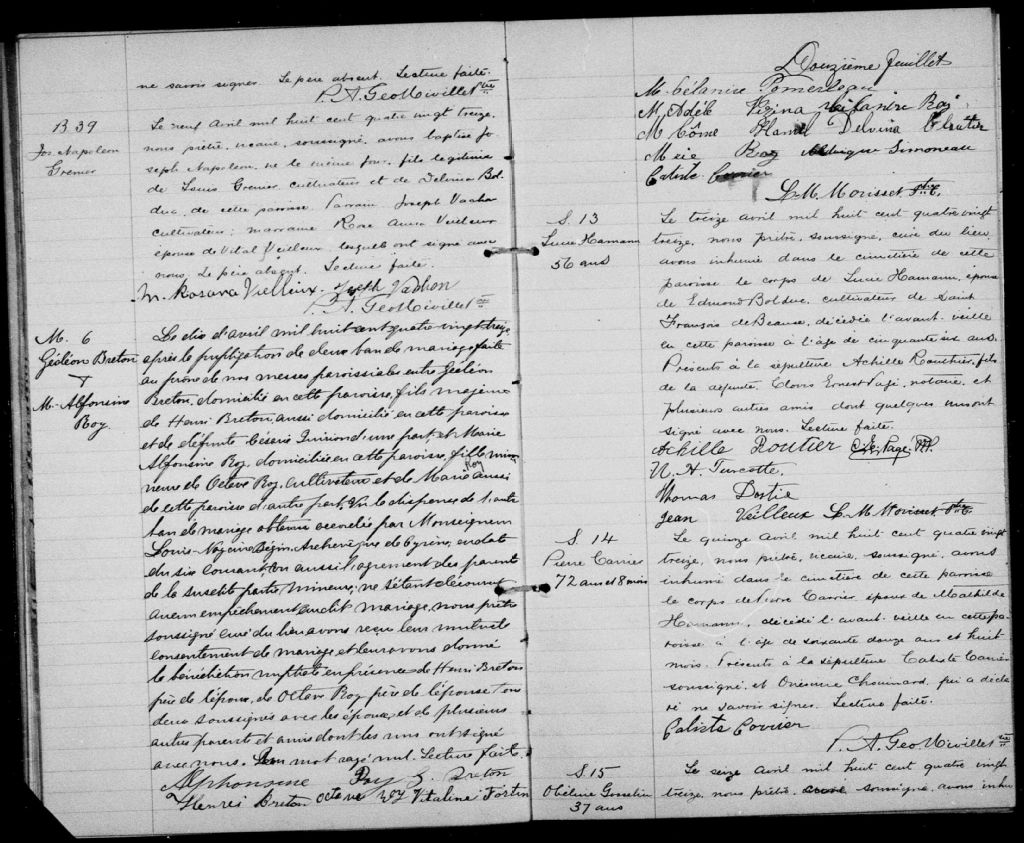 ne savoir signer. Le père absent. Lecture faite.
P. A. Geo Mivillet vre
B 39
Jos. Napoleon
Grenier
Le neuf Avril mil huit cent quatre vingt treize,
nous prêtre, vicaire, soussigné, avons baptisé Jo
seph Napoleon, né le même jour, fils légitime
de Louis Grenier, cultivateur et de Delvina Bol-
duc, de cette paroisse. Parrain Joseph Vachon
cultivateur; marraine Rose Anna Veilleux
épouse de Vital Veilleux lesquels ont signé avec
nous. Le père absent. Lecture faite.
M. Rosana Vielleux. Joseph Vachon
P. A. Geo Mivillet vre
M. 6
Gédéon Breton
&
M. Alfonsine
Roy
Le dix d'avril mil huit cent quatre vingt treize
après la publication de deux bans de mariage faite
au prône de nos messes paroissiales entre Gédéon
Breton, domicilié en cette paroisse, fils majeur
de Henri Breton, aussi domicilié en cette paroisse
et de défunte Césarie d'une part, et Marie
Alfonsine Roy, domiciliée en cette paroisse, fille mi-
neure de Octave Roy, cultivateur et de Marie Roy aussi
de cette paroisse d'autre part. Vu la dispense de l'autre
ban de mariage obtenue accordée par Monseigneur
Louis-Nazaire Bégin, Archevêque de Cyrène, en date
du six courant, vu aussi l'agrément des parents
de la susdite partie mineure; ne s'étant découvert
aucun empêchement au dit mariage, nous prêtre
soussigné curé du lieu avons reçu leur mutuel
consentement de mariage et leur avons donné
la bénédiction nuptiale en présence de Henri Breton
père de l'époux, de Octave Roy père de l'épouse tous
deux soussignés avec les époux, et de plusieurs
autres parents et amis dont les uns ont signé
avec nous. mot rayé nul. Lecture faite.
Alphonsine Roy G. Breton
Henri Breton Octave Roy Vitaline Fortin
Douzième feuillet
M. Célanire Pomerleau
M. Adèle Régina Roy
M. Côme Hamel Delvina Cloutier
Roy Simoneau
Caliste Carrier
L. M. Morisset Ptre C.
S. 13
Lucie Hamann
56 ans
Le treize avril mil huit cent quatre vingt
treize, nous prêtre, soussigné, curé du lieu
avons inhumé dans le cimetière de cette
paroisse le corps de Lucie Hamann, épouse
de Edmond Bolduc, cultivateur de Saint
François de Beauce, décédée l'avant-veille
en cette paroisse à l'âge de cinquante six ans.
Présents à la sépulture Achille Routhier, fils
de la défunte, Clovis Ernest Pagé, notaire, et
plusieurs autres amis dont quelques uns ont
signé avec nous. Lecture faite.
Achille Routier C. E. Pagé N.P.
N. H. Turcotte.
Thomas Dostie
Jean Veilleux L. M. Morisset Ptre C.
S. 14
Pierre Carrier
72 ans et 8 mois
Le quinze Avril mil huit cent quatre vingt
treize, nous prêtre, vicaire, soussigné, avons
inhumé dans le cimetière de cette paroisse
le corps de Pierre Carrier époux de Mathilde
Hamann, décédé l'avant-veille en cette pa-
roisse à l'âge de soixante douze ans et huit
mois. Présents à la sépulture Caliste Carrier
soussigné, et Onésime Chouinard, qui a décla
ré ne savoir signer. Lecture faite.
Caliste Carrier
P. A. Geo Mivillet vre
S. 15
Obéline Gosselin
37 ans
Le seize Avril mil huit cent quatre vingt
treize, nous prêtre, soussigné, avons inhu